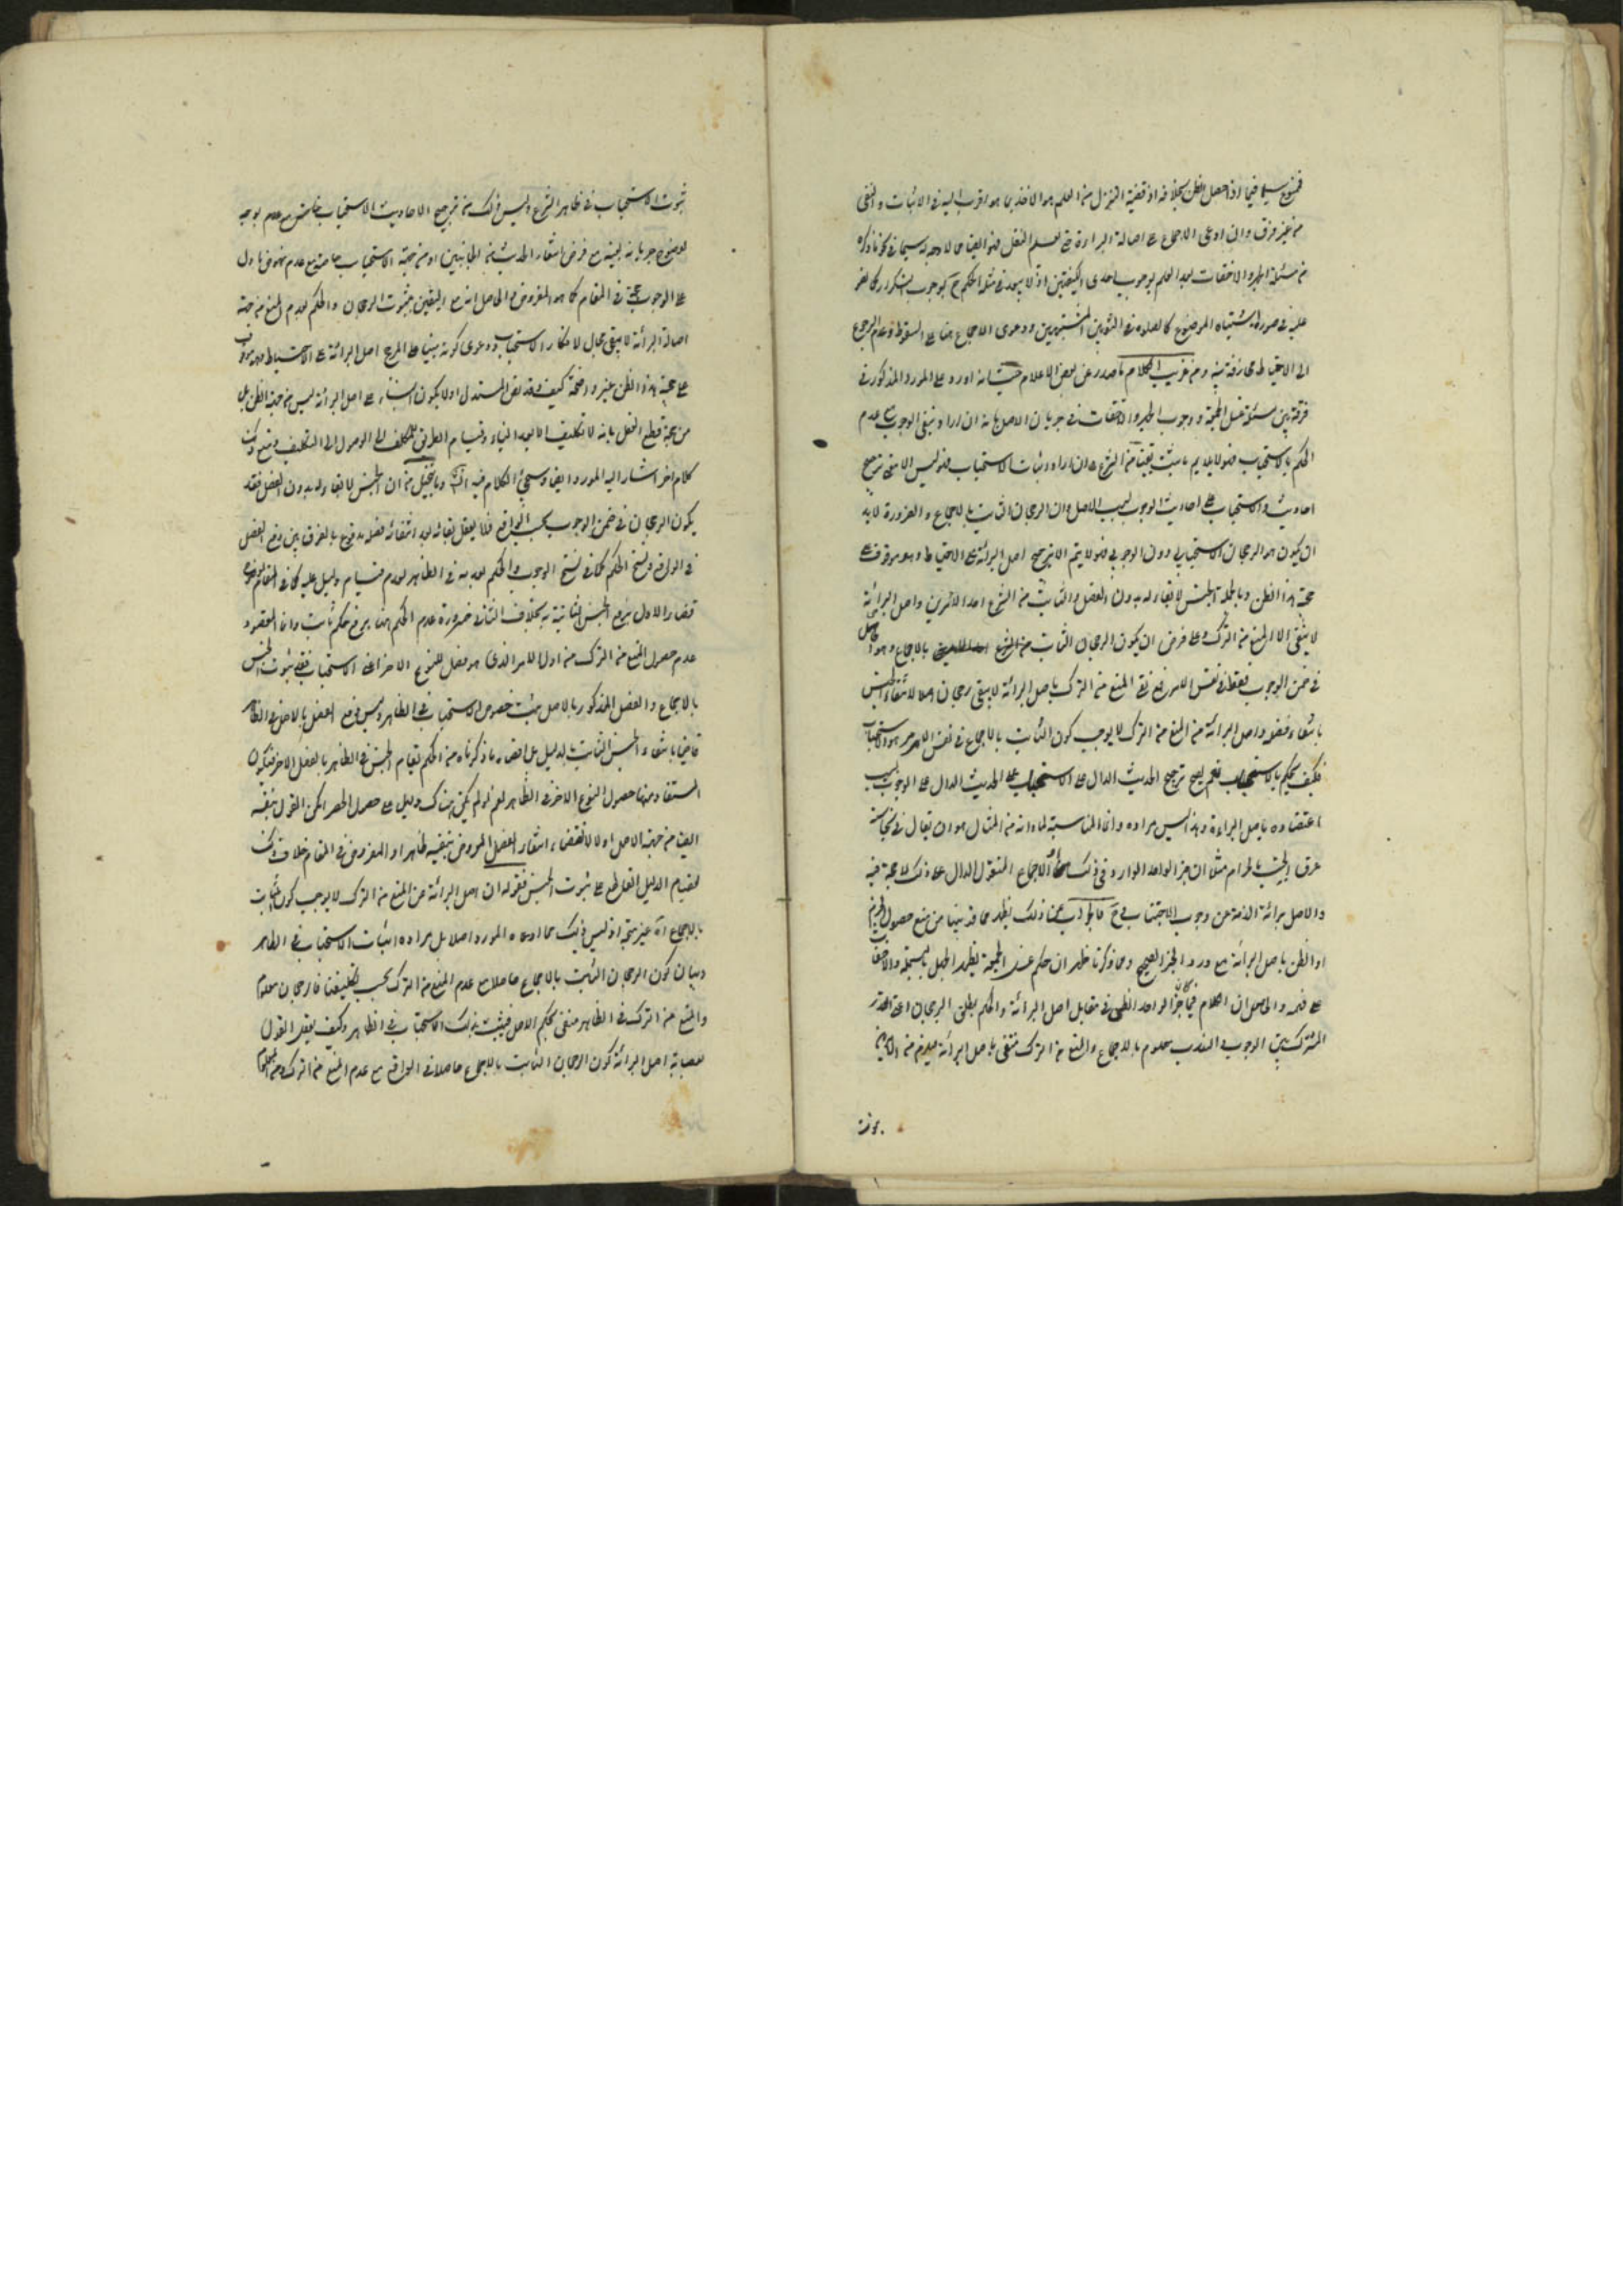 فممنوع سيما فيما اذا حصل الظن بخلافه اذ قضية التنزل من العلم هو الاخذ بما هو اقرب اليه في الاثبات والنفي
من غير فرق وان ادعى الاجماع على اصالة البراءة حتى فهو ايضا مما لا وجه له سيما في نحو ما ذكره
من مسئلة الجهر والاخفات بعد العلم بوجوب احدى الكيفيتين اذ لا يبعد في مثله الحكم بوجوب التكرار كما هو
عليه في صورة اشتباه الموضوع كالصلوة في الثوبين المشتبهين ودعوى الاجماع هنا على السقوط وعدم الرجوع
الى الاحتياط مجازفة بينة ومن غريب الكلام ما صدر عن بعض الاعلام حيث انه اورد على المورد المذكور في
فرقه بين مسئلة غسل الجمعة ووجوب الجهر والاخفات في جريان الاصل بانه ان اراد بنفي الوجوب مع عدم
الحكم بالاستحباب فهو لا يلايم ما يثبت يقينا من الشرع وان اراد اثبات الاستحباب فهو ليس الا معنى ترجيح
احاديث الاستحباب على احاديث الوجوب بسبب الاصل وان الرجحان الثابت بالاجماع والضرورة لابد
ان يكون هو الرجحان الاستحبابي دون الوجوبي فهو لا يتم الا بترجيح اصل البرائة على الاحتياط وهو موقوف على
حجية هذا الظن وبالجملة الجنس لا بقاء له بدون الفصل والثابت من الشرع احد الامرين واصل البرائة
لا ينفى الا المنع من الترك وعلى فرض ان يكون الرجحان الثابت بالاجماع هو الحاصل
في ضمن الوجوب فقط في نفس الامر فمع نفي المنع من الترك باصل البرائة لا يبقى رجحان اصلا لانتفاء الجنس
بانتفاء فصله واصل البرائة من المنع من الترك لا يوجب كون الثابت بالاجماع في نفس الامر هو الاستحباب
فكيف يحكم بالاستحباب نعم يصح ترجيح الحديث الدال على الاستحباب على الحديث الدال على الوجوب بسبب
اعتضاده باصل البراءة وهذا ليس مراده وانما المناسبة لما رامه من المثال هو ان يقال في نجاسة
عرق الجنب بالحرام مثلا ان خبر الواحد الوارد في ذلك او الاجماع المنقول الدال على ذلك لا حجة فيه
والاصل برائة الذمة عن وجوب الاجتناب وح فالجواب عن ذلك يظهر مما قد بينا من منع حصول الجزم
او الظن باصل البرائة مع ورود الخبر الصحيح ومما ذكرنا ظهر ان حكم غسل الجمعة نظير الجهل بالبسملة والاخفات
على فهمه والحاصل ان الكلام فيما كان خبر الواحد الظني في مقابل اصل البرائة والحكم بظني الرجحان اعني القدر
المشترك بين الوجوب والندب معلوم بالاجماع والمنع من الترك منفي باصل البرائة فيلزم من الامرين
ثبوت
ثبوت الاستحباب في ظاهر الشرع وليس ذلك من ترجيح الاحاديث الاستحباب بناء على عدم توجه
لوضوح جريانه بعينه مع فرض انتفاء الحديث من الجانبين او من جهة الاستحباب خاصة مع عدم نهوض ما دل
على الوجوب حجة في المقام كما هو المفروض والحاصل انه مع اليقين بثبوت الرجحان والحكم بعدم المنع من جهة
اصالة البرائة لا يبقى مجال لانكار الاستحباب ودعوى كونه مبنيا على ترجيح اصل البرائة على الاحتياط وهو موقوف
على حجية هذا الظن غير واضحة كيف وقد نص المستدل اولا بكون البناء على اصل البرائة ليس من جهة الظن بل
من جهة قطع العقل بانه لا تكليف الا بعد البيان وقيام الطريق للمكلف الى الوصول الى التكليف ومنع ذلك
كلام اخر اشار اليه المورد ايضا وسيجئ الكلام فيه انش وما يتخيل من ان الجنس لا بقاء له بدون الفصل فقد
يكون الرجحان في ضمن الوجوب بحسب الواقع فلا يعقل بقائه بعد انتفائه فصله مدفوع بالفرق بين رفع الفصل
في الواقع ونسخ الحكم كما في نسخ الوجوب والحكم بعدمه في الظاهر لعدم قيام دليل عليه كما في المقام
قضاء الاول برفع الجنس الثابت به بخلاف الثاني ضرورة عدم الحكم هناك برفع حكم ثابت وانما المقصود
عدم حصول المنع من الترك من اول الامر الذي هو فصل للنوع الاخر اعني الاستحباب فبعد ثبوت الجنس
بالاجماع والفصل المذكور بالاصل يثبت خصوص الاستحباب في الظاهر وليس رفع الفصل بالاصل في الظاهر
قاضيا بانتفاء الجنس الثابت بالدليل بل اقصى ما ذكرناه من الحكم بقيام الجنس في الظاهر بالفصل الاخر فيكون
المستفاد منهما حصول النوع الاخر في الظاهر نعم لو لم يكن هناك دليل على حصول الجنس امكن القول بنفيه
ايضا من جهة الاصل اولا لاقتضاء انتفاء الفصل المفروض بنفيه ظاهرا والمفروض في المقام خلاف ذلك
لقيام الدليل القاطع على ثبوت الجنس فقوله ان اصل البرائة عن المنع من الترك لا يوجب كون الثابت
بالاجماع اه غير متجه اذ ليس ذلك مما ادعاه المورد اصلا بل مراده اثبات الاستحباب في الظاهر
وبيان كون الرجحان الثابت بالاجماع حاصلا مع عدم المنع من الترك بحسب تكليفنا فالرجحان معلوم
والمنع من الترك في الظاهر منفي بحكم الاصل فيثبت بذلك الاستحباب في الظاهر وكيف يعقل القول
باصالة اصل البرائة كون الرجحان الثابت بالاجماع حاصلا في الواقع مع عدم المنع من الترك ومن المعلوم